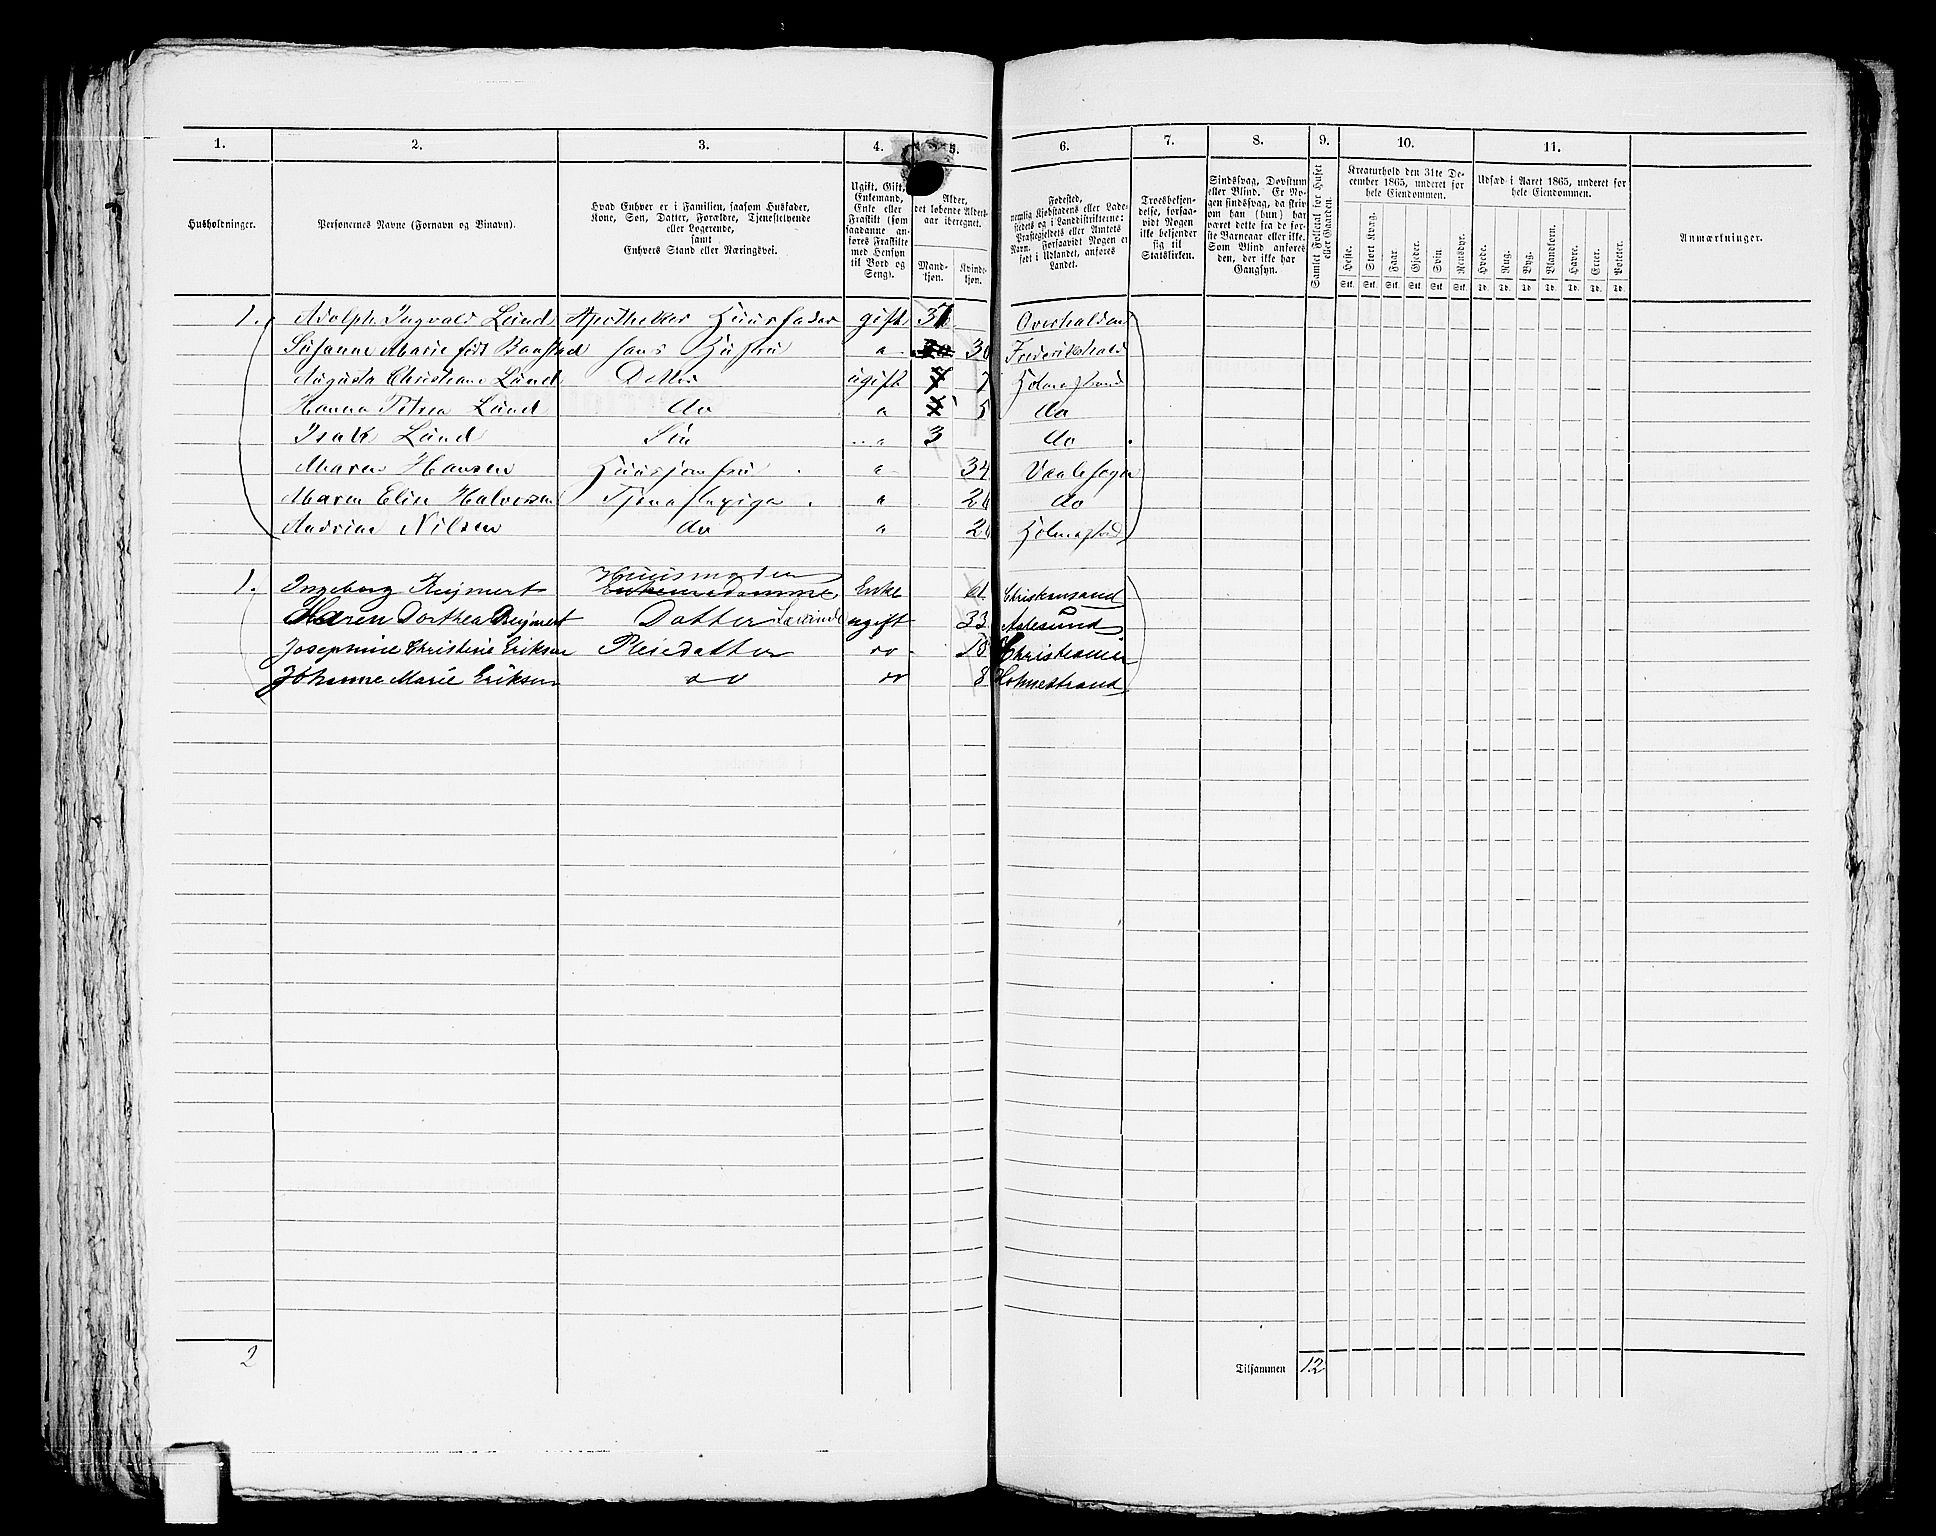 1. 2. 3. 4. 5. 6. 7. 8. 9. 10. 11.
Husholdninger.
Personernes Navne (Fornavn og Binavn).
Hvad Enhver er i Familien, saasom Husfader,
Kone, Søn, Datter, Forældre, Tjenestetyende
eller Logerende,
samt
Enhvers Stand eller Næringsvei.
Ugift, Gift,
Enkemand,
Enke eller
Fraskilt (som
saadanne an-
føres Fraskilte
med Hensyn
til Bord og
Seng).
Alder,
det løbende Alders-
aar iberegnet.
Mand-
kjøn.
Kvind-
kjøn.
Fødested,
nemlig Kjøbstadens eller Lade-
stedets og i Landdistrikterne:
Præstegjeldets eller Amtets
Navn. Forsaavidt Nogen er
født i Udlandet, anføres
Landet.
Troesbekjen-
delse, forsaa-
vidt Nogen
ikke bekjender
sig til
Statskirken.
Sindssvag, Døvstum
eller Blind. Er No-
gen sindssvag, da skriv
om han (hun) har
været dette fra de før-
ste Barneaar eller ikke.
Som Blind anføres
den, der ikke har
Gangsyn.
Samlet Folketal for Huset
eller Gaarden.
Kreaturhold den 31te De-
cember 1865, underet for
hele Eiendommen.
Heste. Stort Kvæg. Faar Gjeder. Svin Rensdyr.
Stk. Stk. Stk. Stk. Stk. Stk.
Udsæd i Aaret 1865, underet for
hele Eiendommen.
Hvede. Rug. Byg. Blandkorn. Havre. Erter. Poteter.
Td. Td. Td. Td. Td. Td. Td.
Anmærkninger.
1. Adolph Ingvald Lund Apotheker Huusfader gift 31 Overhalden
Susanne Marie født Baastad hans Hustru " 30 Frederikshald
Augusta Christiane Lund Datter ugift 7 Holmestrand
Hanna Petrea Lund do " 5 do
Isak Lund Søn " 3 do
Maren Hansen Huusjomfru " 34 Vaale sogn
Maren Elise Halvorsen Tjenestepige " do
Andrine Nilsen do " Holmestrd
1. Ingeborg Reimert Huusmoder Enke 61 Christiansand
Maren Dorthea Reimert Datter ugift 33 Aalesund
Josephine Christine Eriksen Pleiedatter do Christiania
Johanne Marie Eriksen do do 8 Holmestrand
2
Tilsammen 12